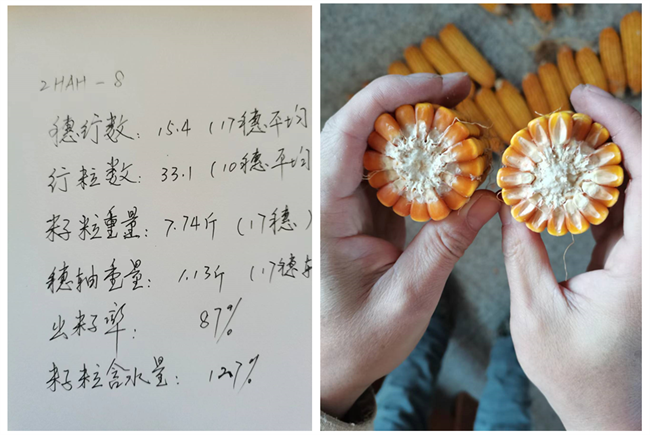 2HAH-8
穗行数: 15.4 (17穗平均
行粒数: 33.1 (10穗平均
籽粒重量: 7.74斤 (17穗)
穗轴重量: 1.13斤 (17穗
出籽率: 87%
籽粒含水量: 12.7%